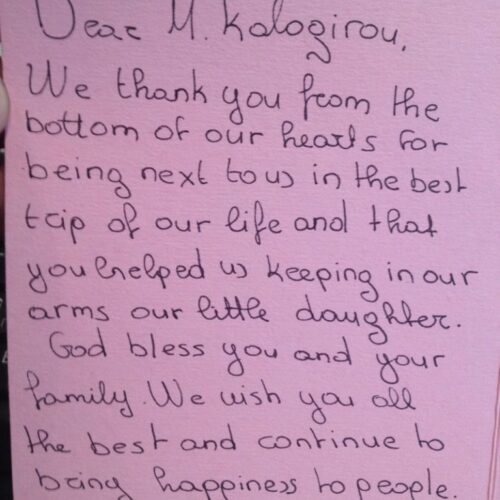 Dear M. Kalogirou,
We thank you from the
bottom of our hearts for
being next to us in the best
trip of our life and that
you helped us keeping in our
arms our little daughter.
God bless you and your
family. We wish you all
the best and continue to
bring happiness to people.